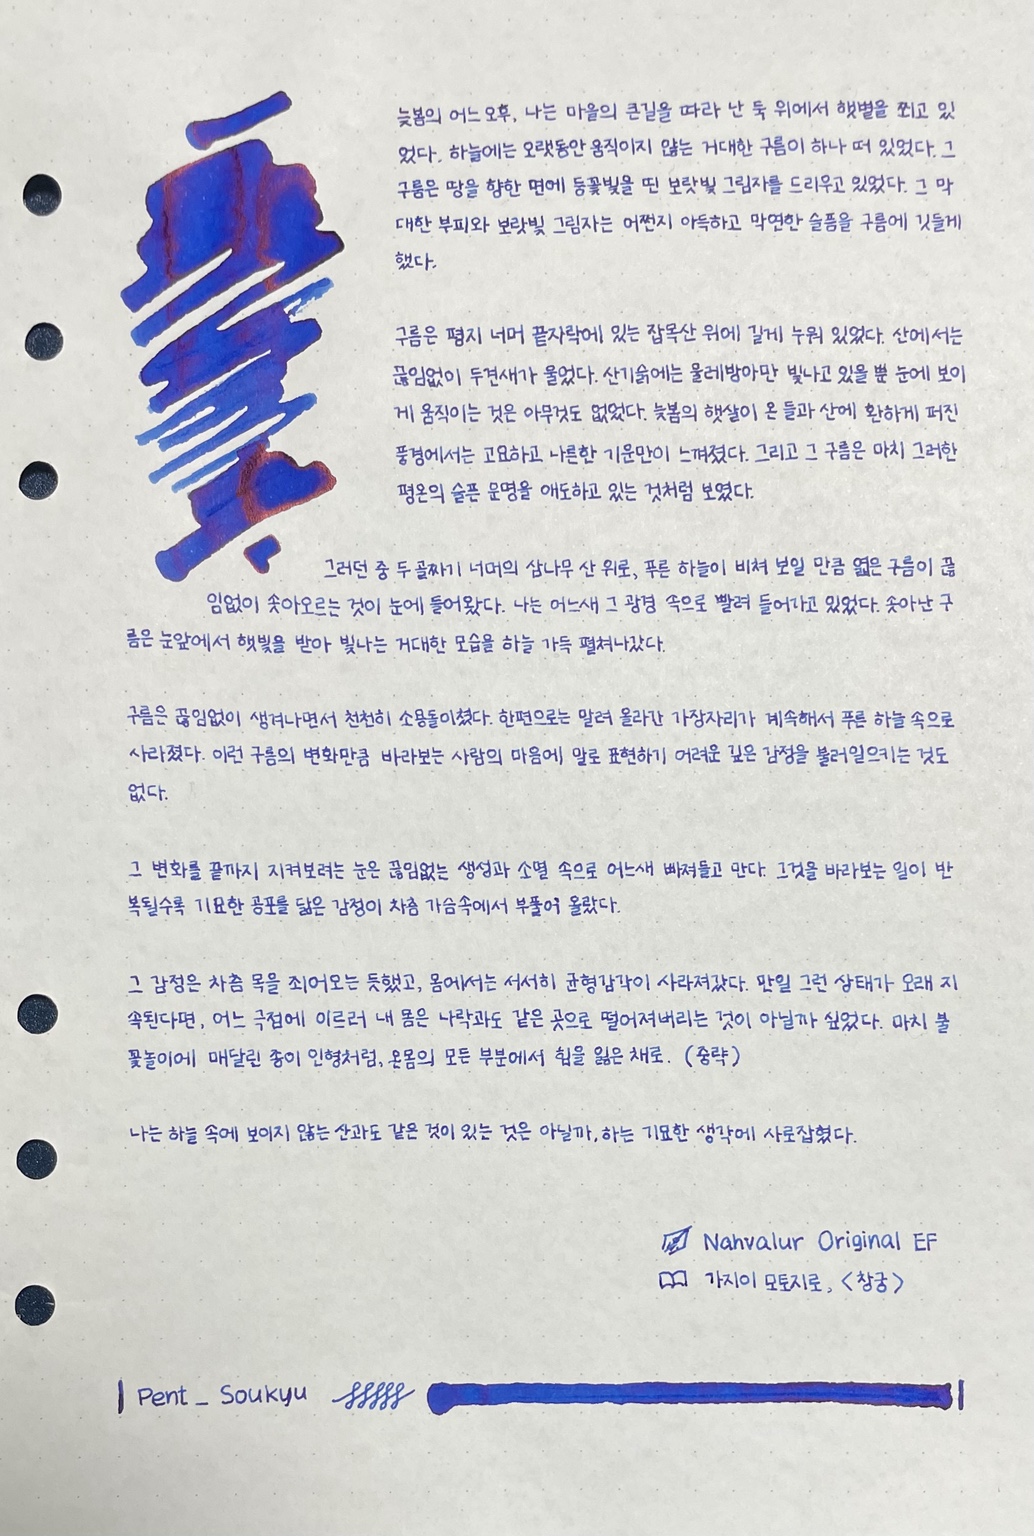 늦봄의 어느 오후, 나는 마을의 큰길을 따라 난 둑 위에서 햇볕을 쬐고 있
었다. 하늘에는 오랫동안 움직이지 않는 거대한 구름이 하나 떠 있었다. 그
구름은 땅을 향한 면에 등꽃빛을 띤 보랏빛 그림자를 드리우고 있었다. 그 막
대한 부피와 보랏빛 그림자는 어쩐지 아득하고 막연한 슬픔을 구름에 깃들게
했다.
구름은 평지 너머 끝자락에 있는 잡목산 위에 길게 누워 있었다. 산에서는
끊임없이 두견새가 울었다. 산기슭에는 물레방아만 빛나고 있을 뿐 눈에 보이
게 움직이는 것은 아무것도 없었다. 늦봄의 햇살이 온 들과 산에 환하게 퍼진
풍경에서는 고요하고 나른한 기운만이 느껴졌다. 그리고 그 구름은 마치 그러한
평온의 슬픈 운명을 애도하고 있는 것처럼 보였다.
그러던 중 두 골짜기 너머의 삼나무 산 위로, 푸른 하늘이 비쳐 보일 만큼 엷은 구름이 끊
임없이 솟아오르는 것이 눈에 들어왔다. 나는 어느새 그 광경 속으로 빨려 들어가고 있었다. 솟아난 구
름은 눈앞에서 햇빛을 받아 빛나는 거대한 모습을 하늘 가득 펼쳐나갔다.
구름은 끊임없이 생겨나면서 천천히 소용돌이쳤다. 한편으로는 말려 올라간 가장자리가 계속해서 푸른 하늘 속으로
사라졌다. 이런 구름의 변화만큼 바라보는 사람의 마음에 말로 표현하기 어려운 깊은 감정을 불러일으키는 것도
없다.
그 변화를 끝까지 지켜보려는 눈은 끊임없는 생성과 소멸 속으로 어느새 빠져들고 만다. 그것을 바라보는 일이 반
복될수록 기묘한 공포를 닮은 감정이 차츰 가슴속에서 부풀어 올랐다.
그 감정은 차츰 목을 죄어오는 듯했고, 몸에서는 서서히 균형감각이 사라져갔다. 만일 그런 상태가 오래 지
속된다면, 어느 극점에 이르러 내 몸은 나락과도 같은 곳으로 떨어져버리는 것이 아닐까 싶었다. 마치 불
꽃놀이에 매달린 종이 인형처럼, 온몸의 모든 부분에서 힘을 잃은 채로. (중략)
나는 하늘 속에 보이지 않는 산과도 같은 것이 있는 것은 아닐까, 하는 기묘한 생각에 사로잡혔다.
Nahvalur Original EF
가지이 모토지로, <창궁>
Pent _ Soukyu